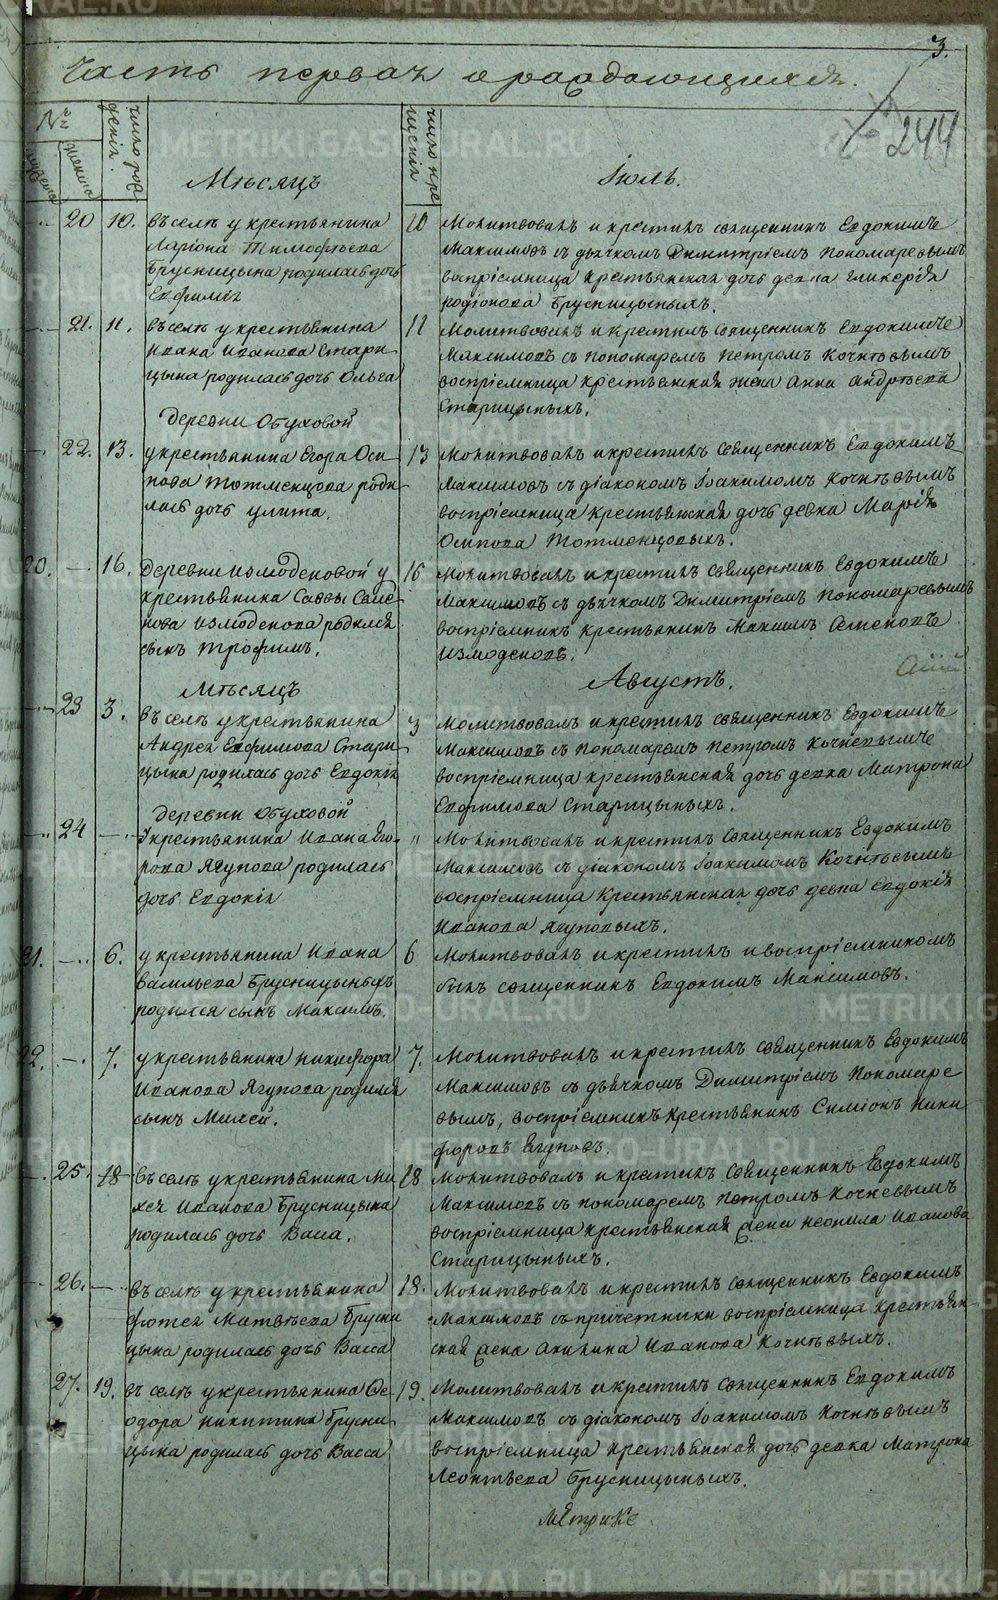 3.
Часть первая о рождающихся.
244
№
мужеска
женска
число рождения.
число крещения
Мѣсяцъ
Іюль.
20
10.
въ селѣ у крестьянина
Ларіона Тимофѣева
Брусницына родилась дочь
Евфимія
10
Молитвовалъ и крестилъ священникъ Евдокимъ
Максимовъ съ дьячкомъ Димитріемъ Пономаревымъ
воспріемница крестьянская дочь девка Гликерія
Родіонова Брусницыныхъ.
21.
11.
въ селѣ у крестьянина
Ивана Иванова Стари
цына родилась дочь Ольга
11
Молитвовалъ и крестилъ священникъ Евдокимъ
Максимовъ съ пономаремъ Петромъ Кочнѣвымъ
воспріемница крестьянская жена Анна Андрѣева
Старицыныхъ.
деревни Обуховой
22.
13.
у крестьянина Егора Оси
пова Тотменцова роди
лась дочь Улита.
13
Молитвовалъ и крестилъ священникъ Евдокимъ
Максимовъ съ діакономъ Іоакимомъ Кочнѣвымъ
воспріемница крестьянская дочь девка Марія
Осипова Тотменцовыхъ.
20.
16.
деревни Измоденовой у
крестьянина Саввы Семе
нова Измоденова родился
сынъ Трофимъ.
16
Молитвовалъ и крестилъ священникъ Евдокимъ
Максимовъ съ дьячкомъ Димитріемъ Пономаревымъ
воспріемникъ крестьянинъ Максимъ Семеновъ
Измоденовъ.
Мѣсяцъ
Августъ.
23
3.
въ селѣ у крестьянина
Андрея Евфимова Стари
цына родилась дочь Евдокія
3
Молитвовалъ и крестилъ священникъ Евдокимъ
Максимовъ съ пономаремъ Петромъ Кочневымъ
воспріемница крестьянская дочь девка Матрона
Евфимова Старицыныхъ.
деревни Обуховой
24
У крестьянина Ивана Его-
рова Ягупова родилась
дочь Евдокія
"
Молитвовалъ и крестилъ священникъ Евдокимъ
Максимовъ съ діакономъ Іоакимомъ Кочнѣвымъ
воспріемница крестьянская дочь девка Евдокія
Иванова Ягуповыхъ.
21.
6.
у крестьянина Ивана
Васильева Брусницыныхъ
родился сынъ Максимъ.
6
Молитвовалъ и крестилъ и воспріемникомъ
былъ священникъ Евдокимъ Максимовъ.
22.
7.
у крестьянина Никифора
Иванова Ягупова родился
сынъ Михей.
7.
Молитвовалъ и крестилъ священникъ Евдокимъ
Максимовъ съ дьячкомъ Димитріемъ Пономаре
вымъ, воспріемникъ крестьянинъ Симіонъ Ники
форовъ Ягуповъ.
25.
18
въ селѣ у крестьянина Ми
хея Иванова Брусницына
родилась дочь Васса.
18
Молитвовалъ и крестилъ священникъ Евдокимъ
Максимовъ съ пономаремъ Петромъ Кочневымъ
воспріемница крестьянская жена Неонила Иванова
Старицыныхъ.
26.
въ селѣ у крестьянина
Фотея Матвѣева Брусни
цына родилась дочь Васса
18.
Молитвовалъ и крестилъ священникъ Евдокимъ
Максимовъ съ причетники воспріемница крестьян
ская жена Акилина Иванова Кочнѣвыхъ.
27.
19.
въ селѣ у крестьянина Ѳе
одора Никитина Брусни
цына родилась дочь Васса
19.
Молитвовалъ и крестилъ священникъ Евдокимъ
Максимовъ съ діакономъ Іоакимомъ Кочнѣвымъ
воспріемница крестьянская дочь девка Матрона
Леонтьева Брусницыныхъ.
Метрике
METRIKI.GASO-URAL.RU